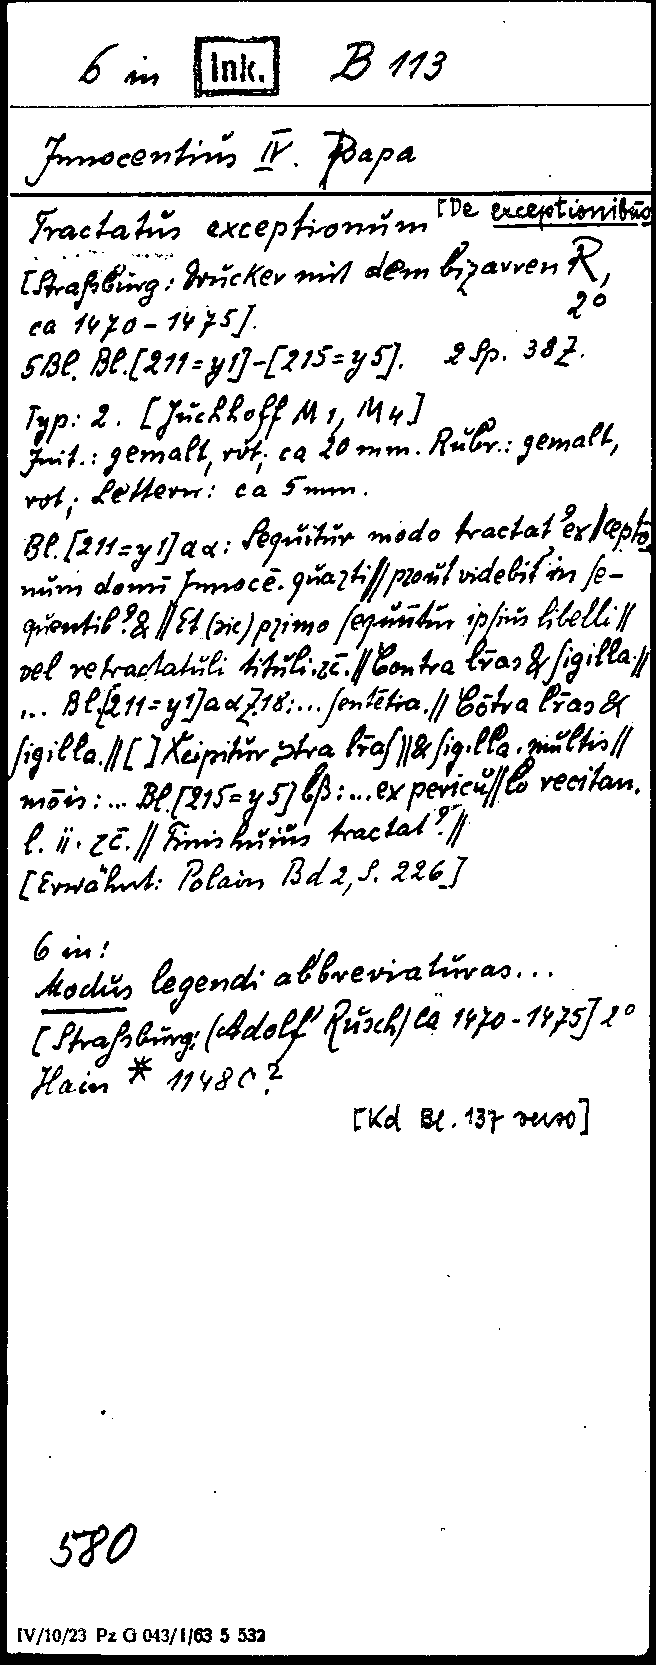 6 in Ink. B 113
Innocentius IV. Papa
Tractatus exceptionum [De exceptionibus
[Straßburg: Drucker mit dem bizarren R,
ca 1470-1475]. 2°
5 Bl. Bl. [211=y1]-[215=y5]. 2 Sp. 38 Z.
Typ: 2. [Juchhoff M1, M4]
Init.: gemalt, rot; ca 20 mm. Rubr.: gemalt,
rot; Lettern: ca 5 mm.
Bl. [211=y1] aα: Sequitur modo tractatꝰ ex//cepto
num domī Innocē. quarti // prout videbit̄ in se-
quentibꝰ. & // Et (sic) primo sequūtur ipsius libelli //
vel retractatuli tituli. ⁊c̄. // Contra lr̄as & sigilla. //
... Bl. [211=y1] aα Z. 18: ... sentētia. // Cōtra lr̄as &
sigilla. // [ ] Xcipitur ɔtra lr̄as // & sigilla. multis //
mōis: ... Bl. [215=y5] bβ: ... ex pericu//lo recitan.
l. ii. ⁊c̄. // Finis huius tractatꝰ. //
[Erwähnt: Polain Bd 2, S. 226]
6 in:
Modus legendi abbreviaturas...
[Straßburg: (Adolf Rusch) ca 1470-1475] 2°
Hain * 11480?
[Kd Bl. 137 verso]
580
IV/10/23 Pz G 043/1/63 5 532